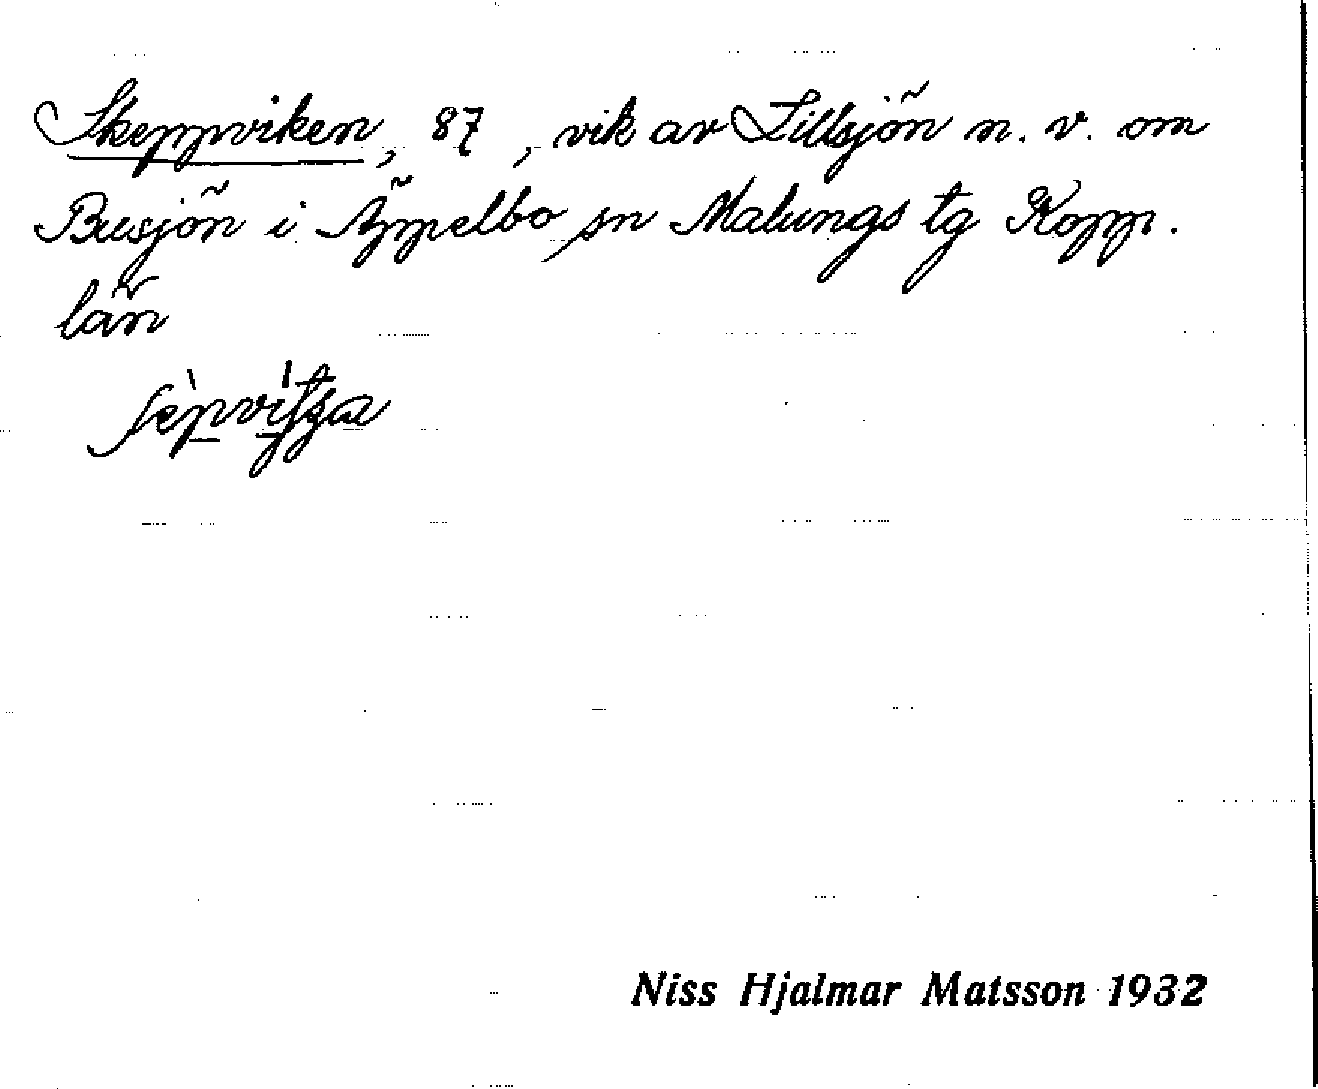 Skeppviken, 87, vik av Lillsjön n. v. om
Busjön i Äppelbo sn Malungs tg Kopp.
län
Niss Hjalmar Matsson 1932